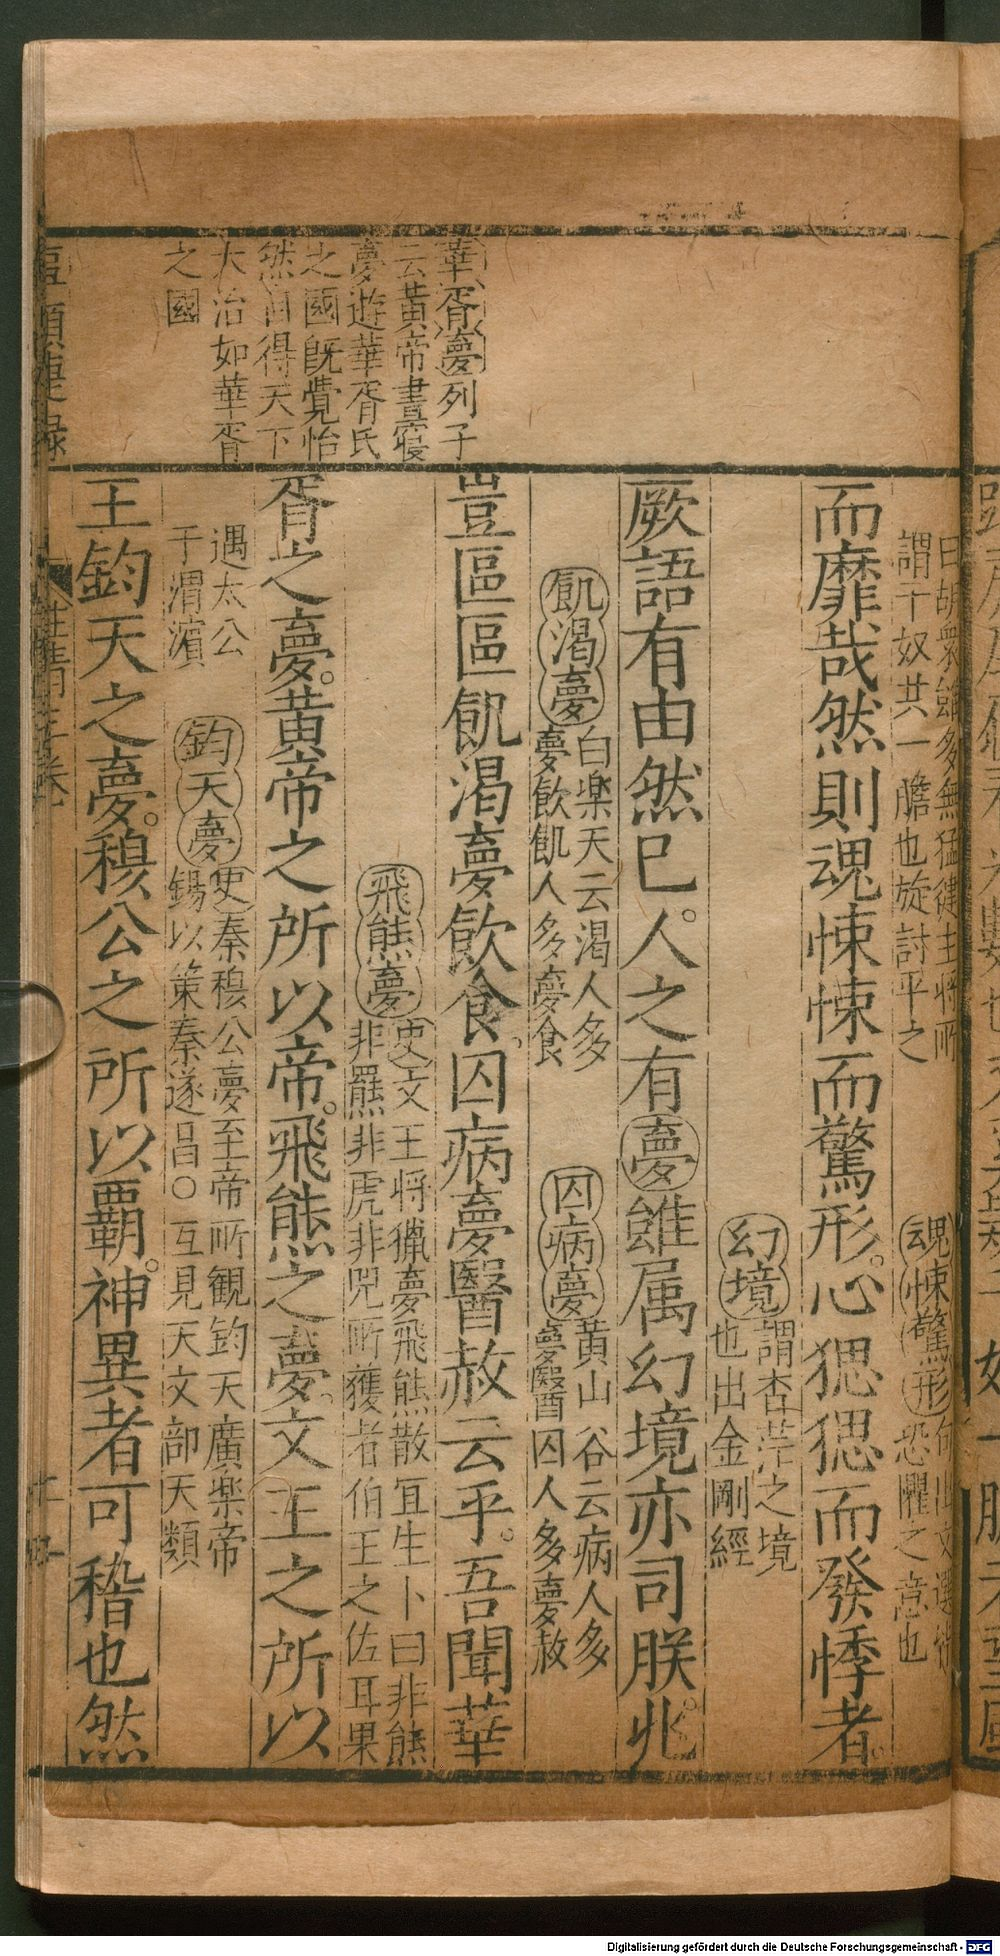 華胥夢列子
云黃帝晝寝
夢遊華胥氏
之國既覺怡
然自得天下
大治如華胥
之國
曰胡衆雖多無猛健主將所
謂千奴共一膽也旋討平之
魂悚驚形
恐懼之意也
而靡哉然則魂悚悚而驚形。心猤猤而發悸者。
幻境
謂杳茫之境
也出金剛經
厥語有由然已。人之有夢雖属幻境亦司朕兆。
飢渴夢
白楽天云渴人多
夢飲飢人多夢食
囚病夢
黃山谷云病人多
夢醫囚人多夢赦
豈區區飢渴夢飲食。囚病夢醫赦云乎。吾聞華
飛熊夢
史文王将獵夢飛熊散冝生卜曰非熊
非羆非虎非兕所獲者伯王之佐耳果
胥之夢。黄帝之所以帝。飛熊之夢。文王之所以
遇太公
于渭濱
鈞天夢
史秦穆公夢至帝所観鈞天廣楽帝
錫以策秦遂昌○互見天文部天類
王鈞天之夢。穆公之所以覇。神異者可稽也然
Digitalisierung gefördert durch die Deutsche Forschungsgemeinschaft - DFG